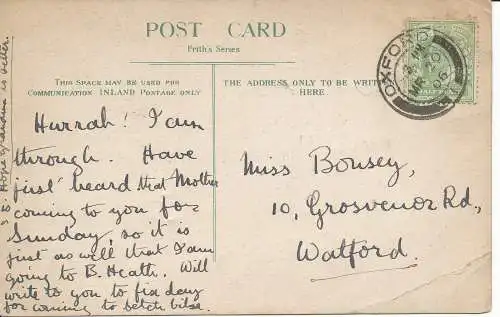 POST CARD
Frith's Series
THIS SPACE MAY BE USED FOR
COMMUNICATION INLAND POSTAGE ONLY
THE ADDRESS ONLY TO BE WRITTEN
HERE
OXFORD
20
06
HALF
Hurrah! I am
through. Have
just heard that Mother
coming to you for
Sunday, so it is
just as well that I am
going to B. Heath. Will
write to you to fix day
for coming to fetch
Hope grandma is better.
Miss Bousey,
10, Grosvenor Rd.,
Watford.